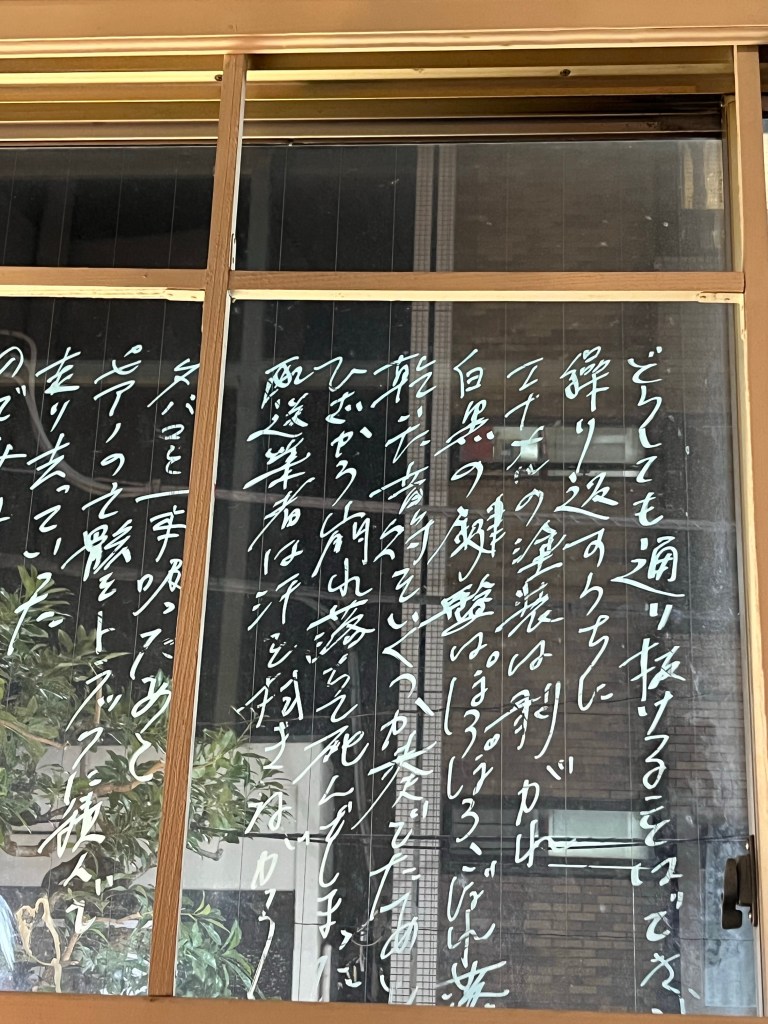 どうしても通り抜けることはでき
繰り返すうちに
エナメルの塗装は剥がれ
白黒の鍵盤はぽろぽろこぼれ落
乾いた音符をいくつか奏でたあ
ひざから崩れ落ちて死んでしまった
配送業者は汗を拭きながら
タバコを一本吸ったあと
ピアノの亡骸をトラックに積んで
走り去っていった